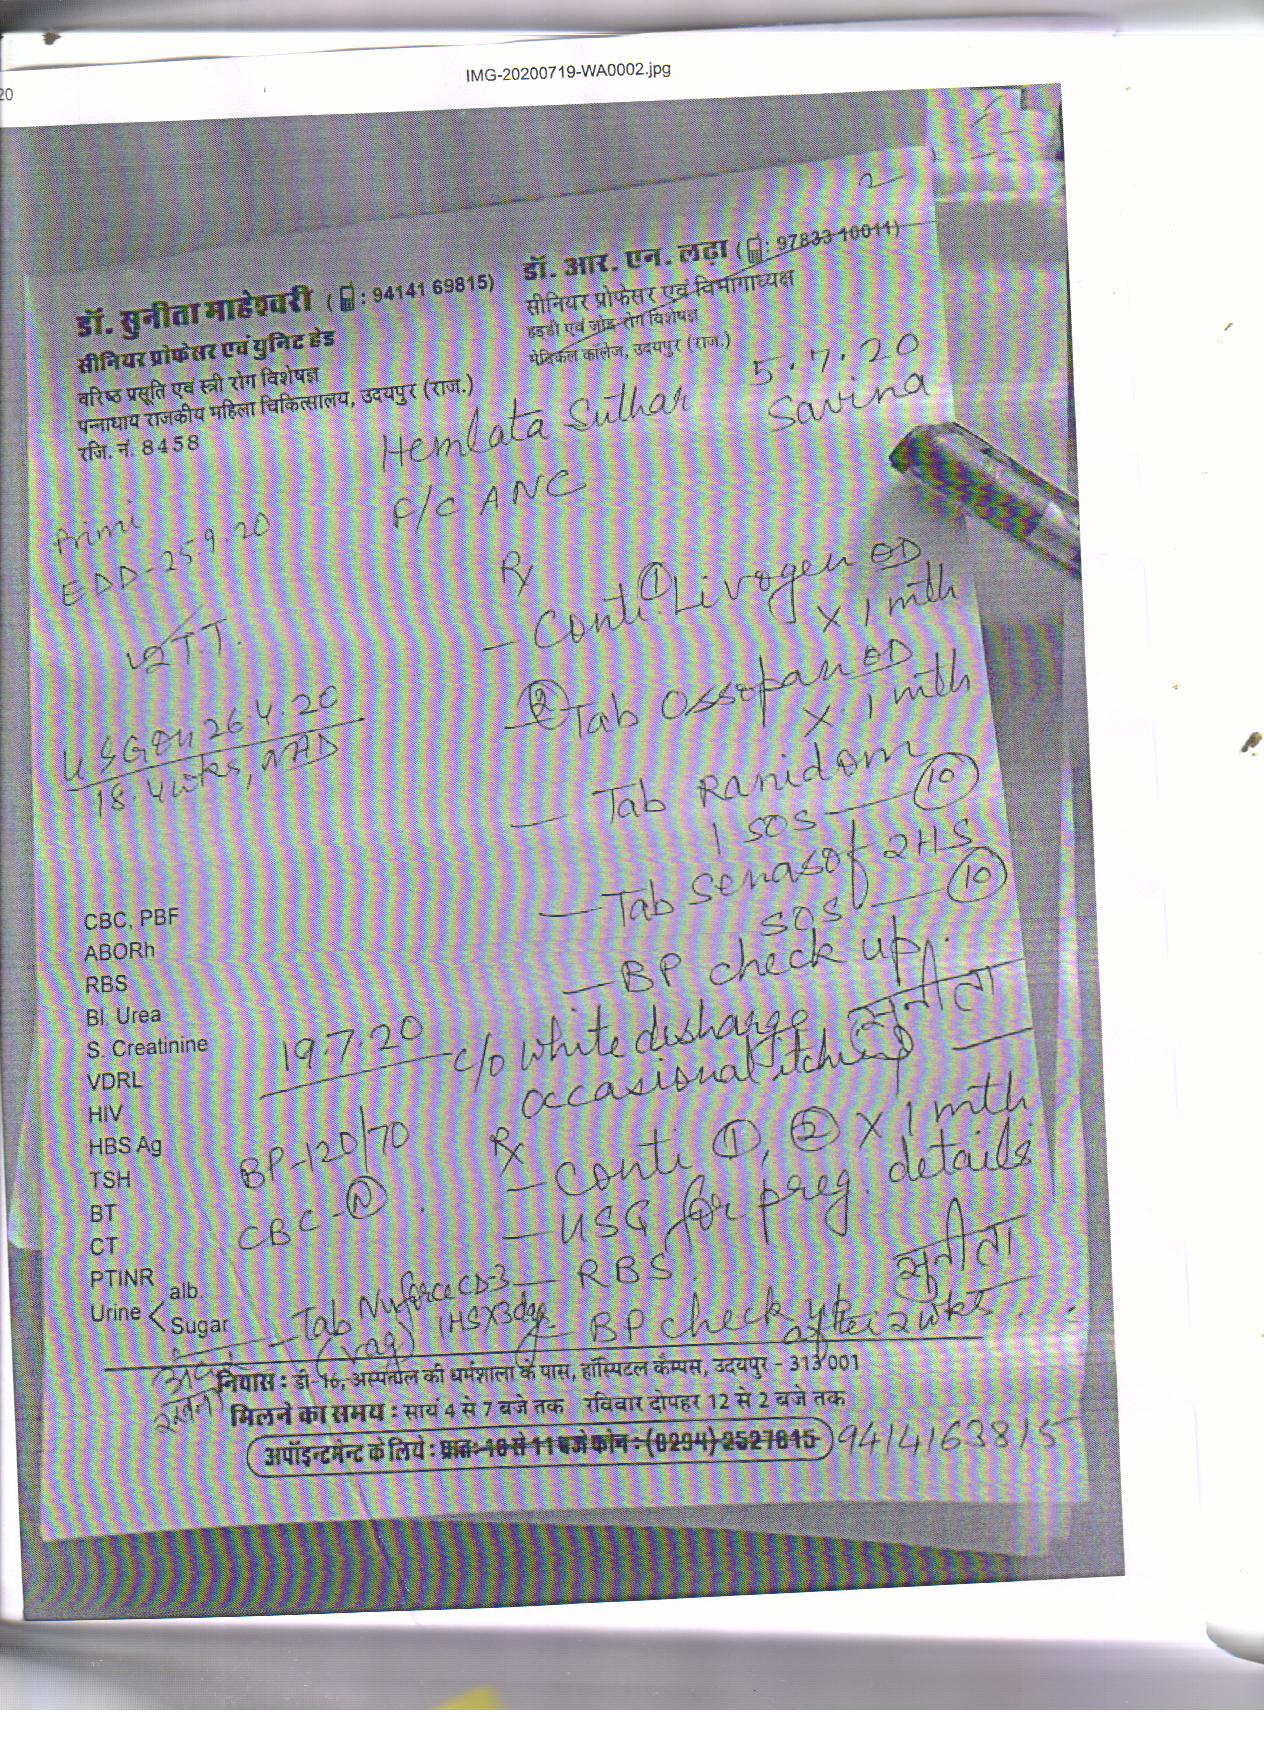 IMG-20200719-WA0002.jpg
20
2
डॉ. सुनीता माहेश्वरी (: 94141 69815)
सीनियर प्रोफेसर एवं युनिट हेड
वरिष्ठ प्रसूति एवं स्त्री रोग विशेषज्ञ
पन्नाधाय राजकीय महिला चिकित्सालय, उदयपुर (राज.)
रजि. नं. 8458
डॉ. आर. एन. लढ़ा (: 97833 10011)
सीनियर प्रोफेसर एवं विभागाध्यक्ष
हड्डी एवं जोड़ रोग विशेषज्ञ
मेडिकल कॉलेज, उदयपुर (राज.)
5.7.20
Hemlata Suthar Savina
F/C ANC
Primi
EDD-25.9.20
2 T.T.
USG on 26.4.20
18.4 wks, NAD
Rx
- Conti. ① Livogen OD
X 1 mth
- ② Tab Ossopan OD
X 1 mth
- Tab Ranidom
1 SOS - 10
- Tab Senasof 2HS
SOS - 10
- BP check up.
सुनीता
CBC, PBF
ABORh
RBS
Bl. Urea
S. Creatinine
VDRL
HIV
HBS Ag
TSH
BT
CT
PTINR
Urine < alb.
Sugar
19.7.20
c/o white discharge
occasional itching
BP-120/70
CBC-N.
Rx
- Conti ①, ② X 1 mth
- USG for preg. details
- RBS
- BP check up
after 2 wks.
सुनीता
- Tab Nuforce CD-3
(vag) 1HSX3days
निवास : डी-16, अस्पताल की धर्मशाला के पास, हॉस्पिटल कैम्पस, उदयपुर - 313 001
मिलने का समय : सायं 4 से 7 बजे तक रविवार दोपहर 12 से 2 बजे तक
अपॉइन्टमेन्ट के लिये : प्रातः 10 से 11 बजे फोन : (0294) 2527815
9414163815